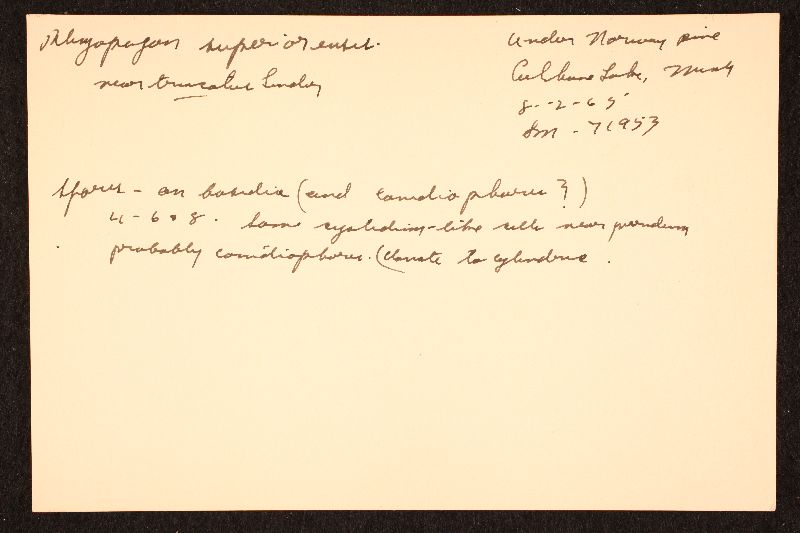 Rhizopogon superiorensis.
near truncatus Linder
Under Norway pine
Culkane Lake, Mich
8-2-65
Sm - 71953
Spores - on basidia (and conidiophores?)
4-6 x 8. Some cystidium-like cells near peridium
probably conidiophores. (clavate to cylindric.